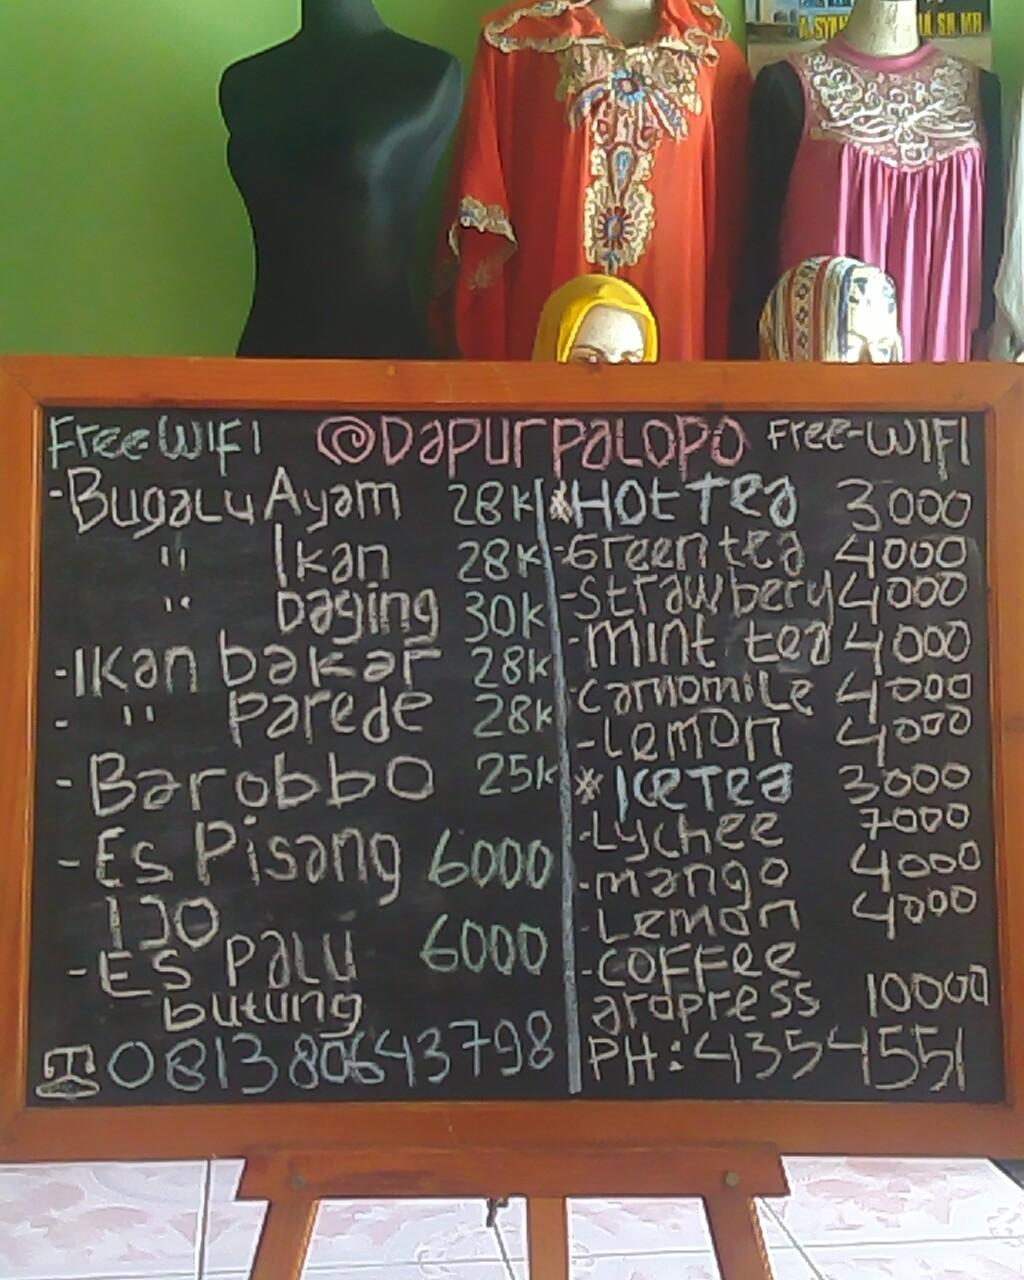 Free WIFI @Dapurpalopo Free-WIFI
-Bugalu Ayam 28K
" Ikan 28K
" Daging 30K
-Ikan bakar 28K
- " Parede 28K
-Barobbo 25K
-Es Pisang 6000
IJO
-Es Palu 6000
butung
081380643798
*Hot Tea 3000
-Green tea 4000
-Strawbery 4000
-Mint tea 4000
-Camomile 4000
-Lemon 4000
*Ice Tea 3000
-Lychee 7000
-mango 4000
-Lemon 4000
-Coffee
aropress 10000
PH: 4354551